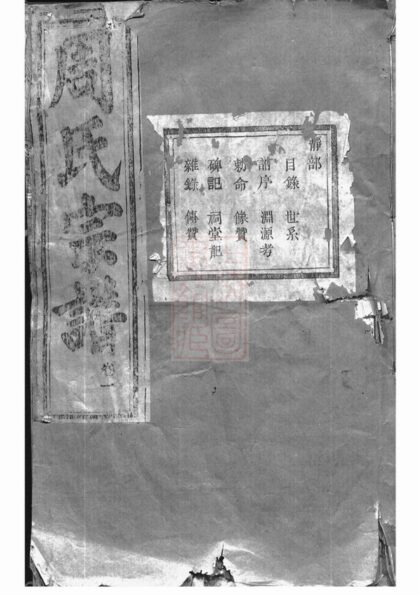 周氏宗譜 卷一
靜部
目錄 世系
譜序 淵源考
勅命 像贊
碑記 祠堂記
雜錄 傳贊